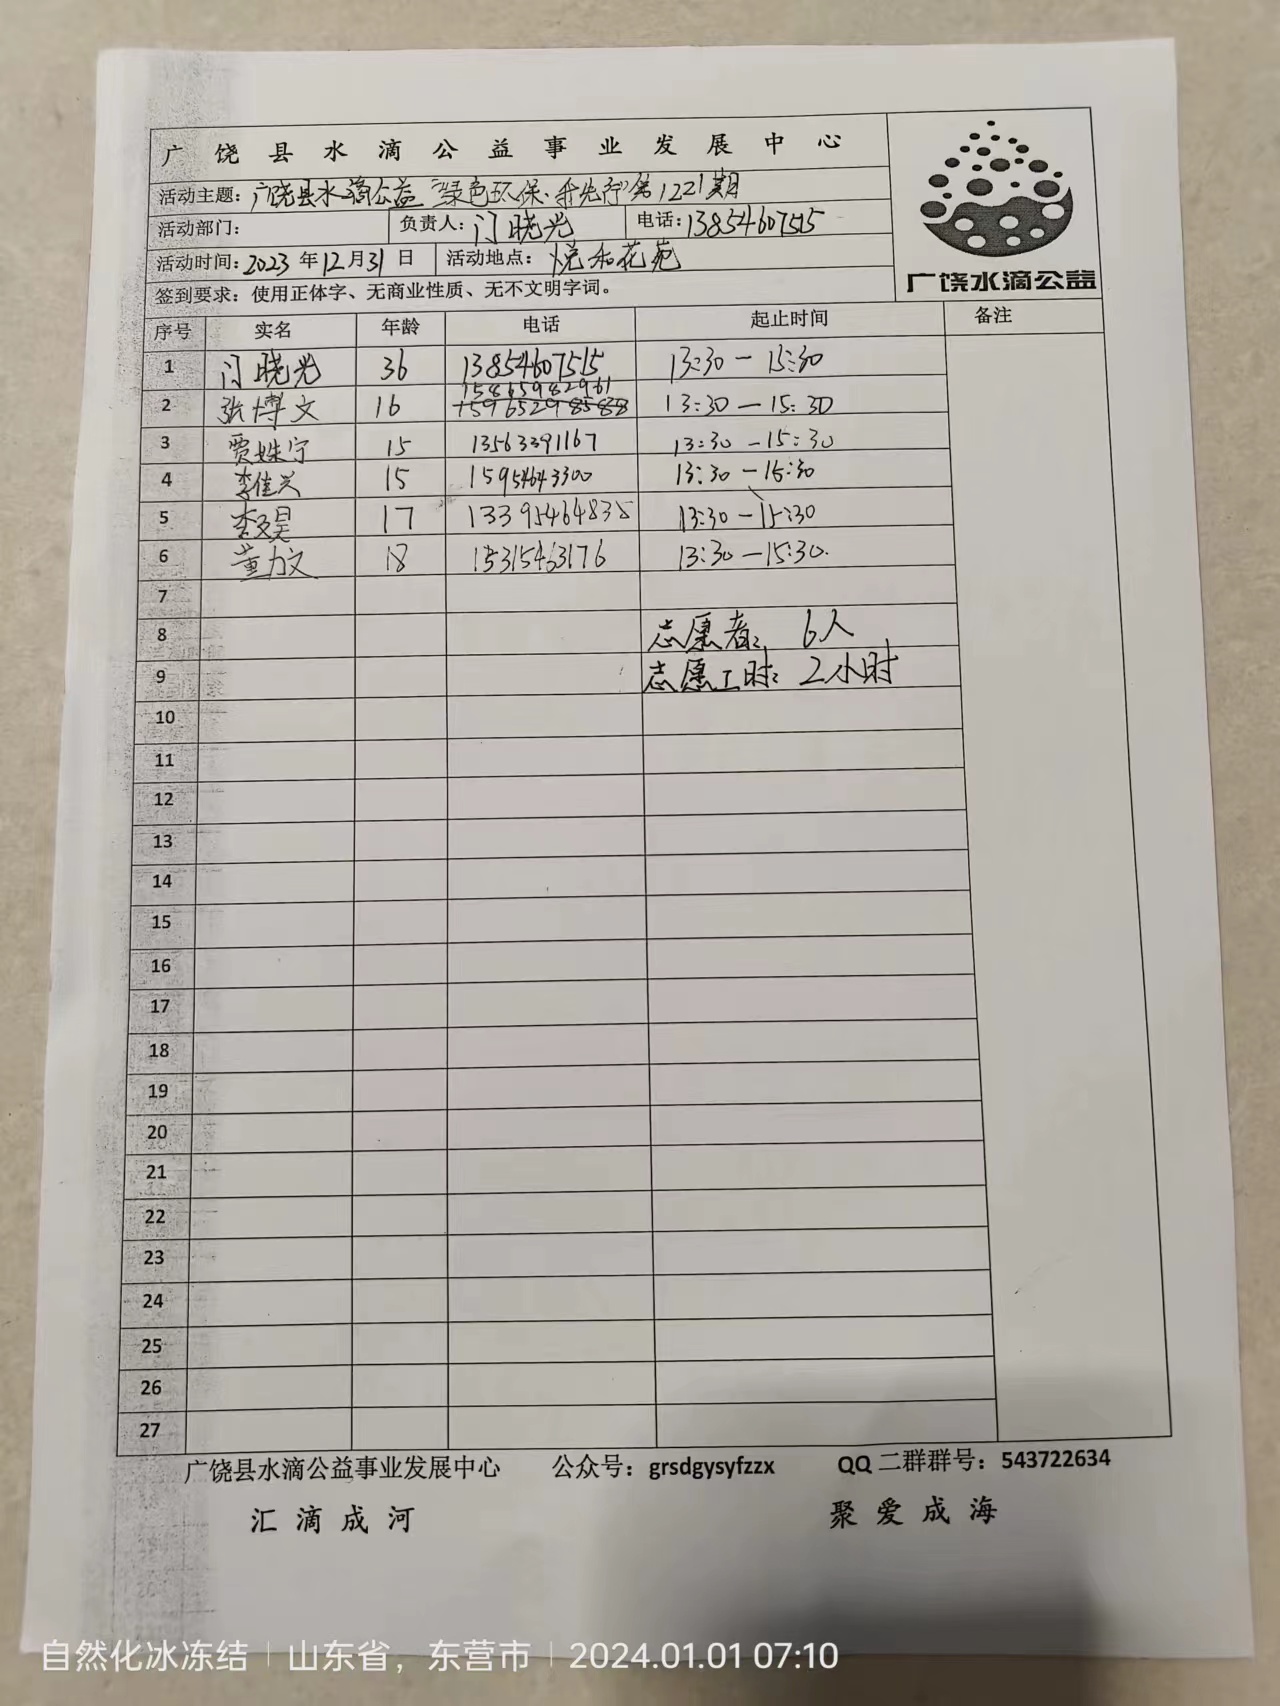 广饶县水滴公益事业发展中心
活动主题：广饶县水滴公益"绿色环保·我先行"第1221期
活动部门： 负责人：门晓光 电话：13854607515
活动时间：2023年12月31日 活动地点：悦和花苑
签到要求：使用正体字、无商业性质、无不文明字词。
广饶水滴公益
序号 实名 年龄 电话 起止时间 备注
1 门晓光 36 13854607515 13:30－15:30
15865982961
2 张博文 16 13:30－15:30
3 贾姝宁 15 13563391167 13:30－15:30
4 李佳兴 15 15954643300 13:30－15:30
5 17 13395464835 13:30－15:30
6 董力文 18 15315463176 13:30－15:30.
7
8 志愿者：6人
9 志愿工时：2小时
10
11
12
13
14
15
16
17
18
19
20
21
22
23
24
25
26
27
广饶县水滴公益事业发展中心 公众号：grsdgysyfzzx QQ二群群号：543722634
汇滴成河 聚爱成海
自然化冰冻结 | 山东省，东营市 | 2024.01.01 07:10